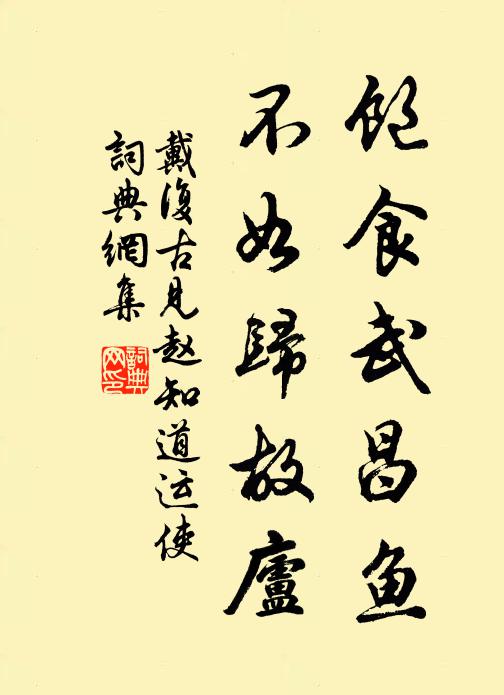 飽食武昌鱼
不如歸故廬
戴復古見赵知道运使
詞典網集
詞典網印